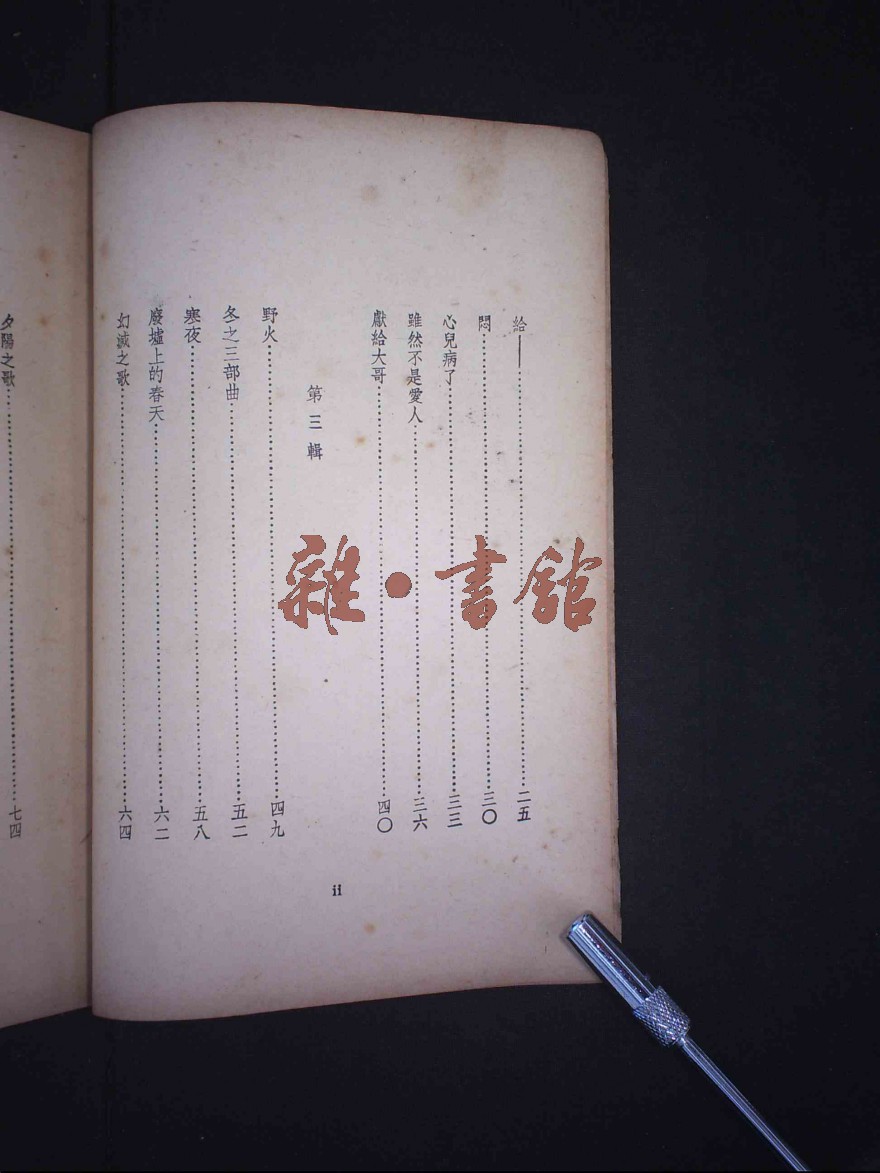 給——二五
悶三〇
心兒病了三三
雖然不是愛人三六
獻給大哥四〇
第三輯
野火四九
冬之三部曲五二
寒夜五八
廢墟上的春天六二
幻滅之歌六四
ii
夕陽之歌七四
雜·書館